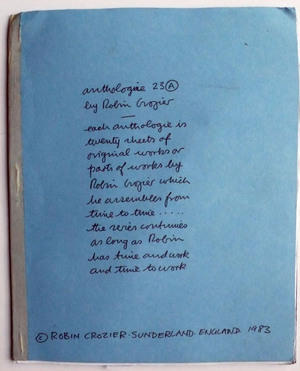 anthologie 23 Ⓐ
by Robin Crozier
—
each anthologie is
twenty sheets of
original works or
parts of works by
Robin Crozier which
he assembles from
time to time .....
the series continues
as long as Robin
has time and work
and time to work
© ROBIN CROZIER · SUNDERLAND · ENGLAND 1983